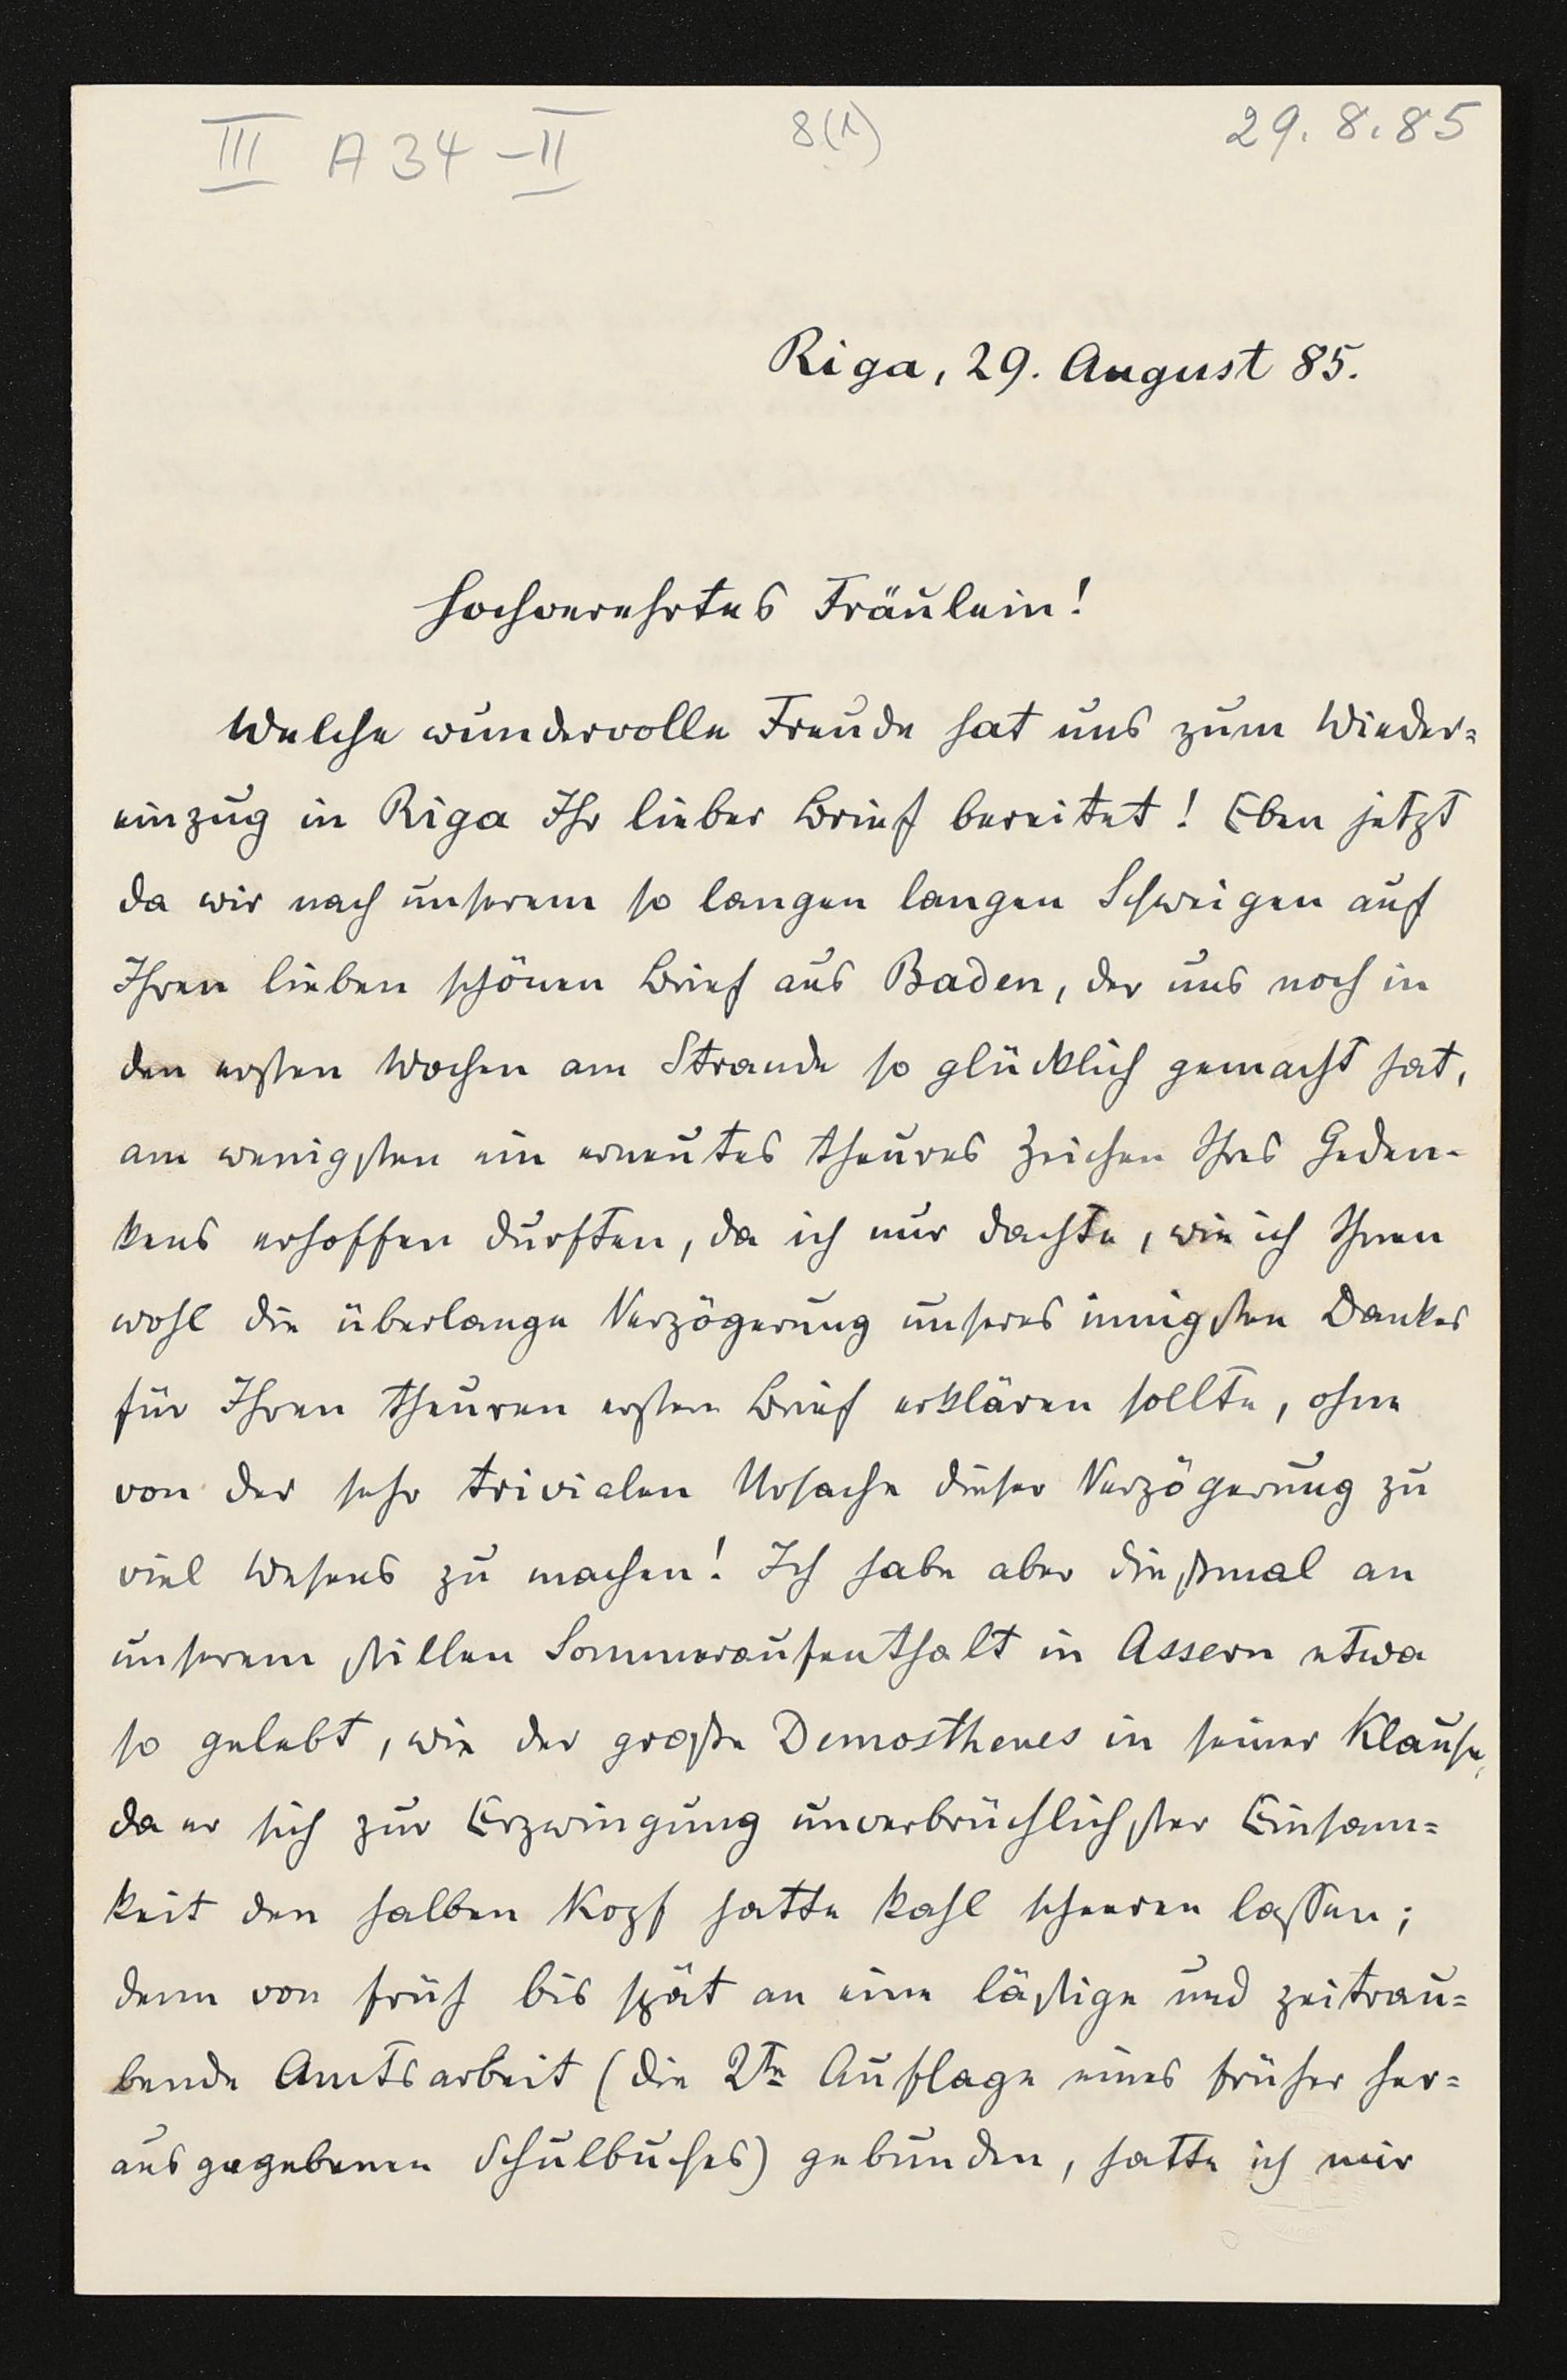 III A 34 - II
8(1)
29.8.85
Riga, 29. August 85.
Hochverehrtes Fräulein!
Welche wundervolle Freude hat uns zum Wieder=
einzug in Riga Ihr lieber Brief bereitet! Eben jetzt
da wir nach unserem so langen langen Schweigen auf
Ihren lieben schönen Brief aus Baden, der uns noch in
den ersten Wochen am Strande so glücklich gemacht hat,
am wenigsten ein erneutes theures Zeichen Ihres Geden-
kens erhoffen durften, da ich nur dachte, wie ich Ihnen
wohl die überlange Verzögerung unseres innigsten Dankes
für Ihren theuren ersten Brief erklären sollte, ohne
von der sehr trivialen Ursache dieser Verzögerung zu
viel Wesens zu machen! Ich habe aber dießmal an
unserem stillen Sommeraufenthalt in Assern etwa
so gelebt, wie der große Demosthenes in seiner Klause,
da er sich zur Erzwingung unverbrüchlichster Einsam=
keit den halben Kopf hatte kahl scheeren lassen;
denn von früh bis spät an eine lästige und zeitrau=
bende Amtsarbeit (die 2te Auflage eines früher her=
ausgegebenen Schulbuches) gebunden, hatte ich mir